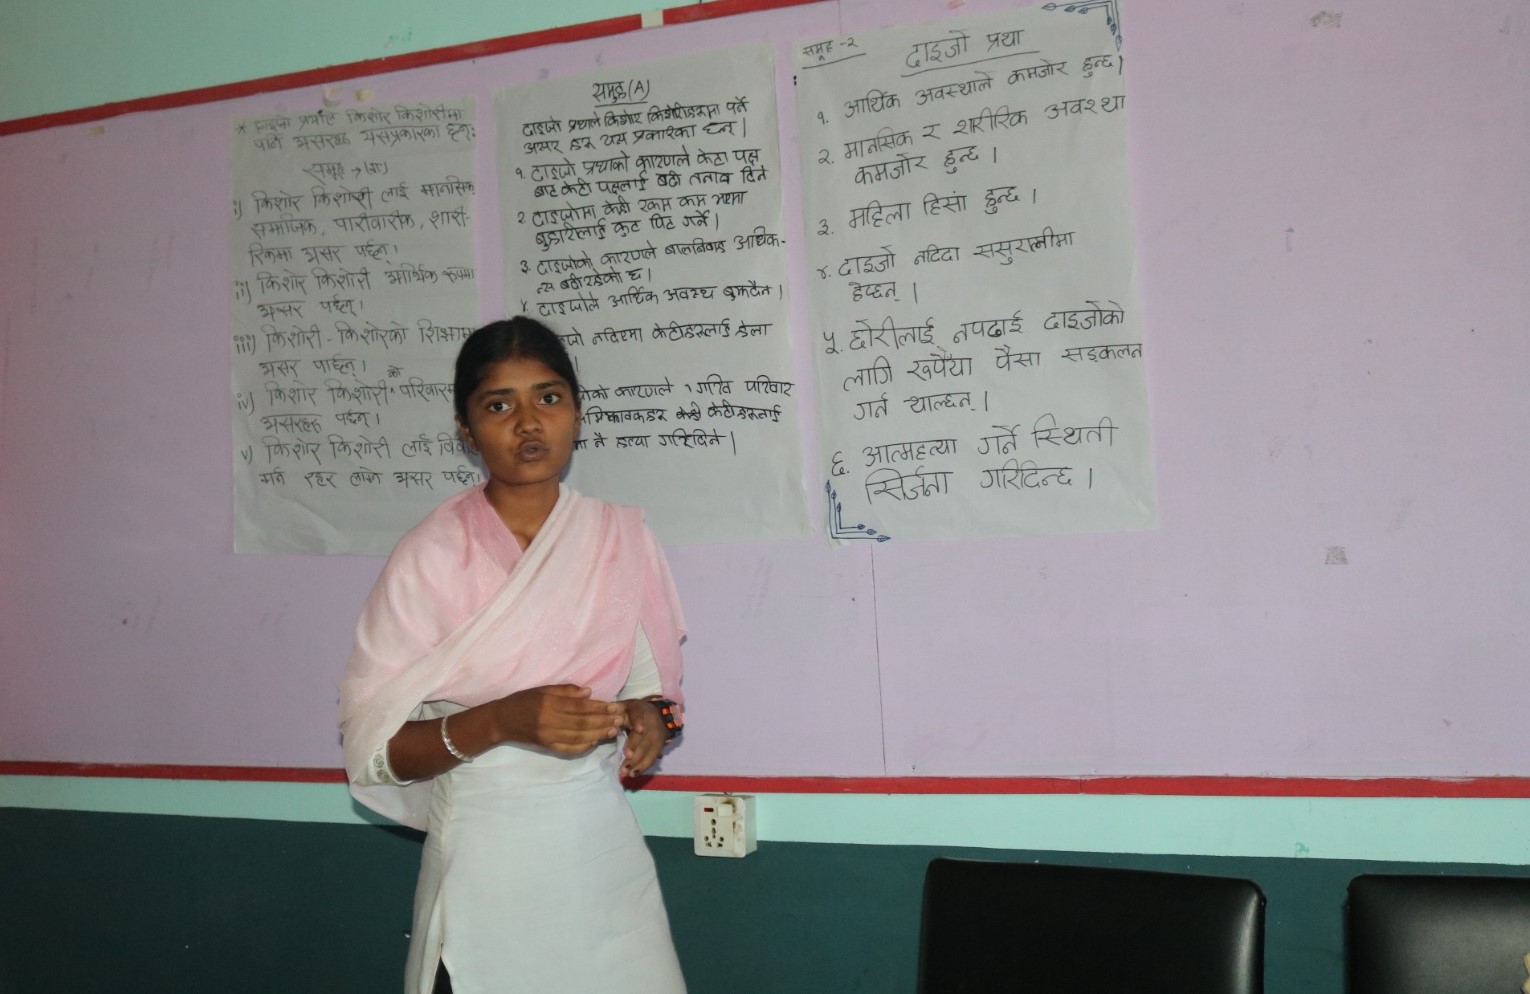 * दाइजो प्रथाले किशोर किशोरीमा
पर्ने असरहरु यसप्रकारका छन्:
समूह →
i) किशोर किशोरी लाई मानसिक
सामाजिक, पारीवारीक, शारी-
रिकमा असर पर्छन्।
ii) किशोर किशोरी आर्थिक रुपमा
असर पर्छन्।
iii) किशोरी - किशोरको शिक्षामा
असर पार्छन्।
iv) किशोर किशोरी को परिवारमा
असरहरु पर्छन्।
v) किशोर किशोरी लाई
गर्न रहर लाग्ने असर पर्छन्।
समुह (A)
दाइजो प्रथाले किशोर किशोरीहरुमा पर्ने
असर हरु यस प्रकारका छन्।
१. दाइजो प्रथाको कारणले केटा पक्ष
बाट केटी पक्षलाई बढी तनाव दिने
२. दाइजोमा केही रकम कम भएमा
बुहारीलाई कुट पिट गर्ने।
३. दाइजोको कारणले बालबिवाह अधिक-
बढीरहेको छ।
४. दाइजोले आर्थिक अवस्था
नदिएमा केटीहरुलाई हेला
।
कारणले गरिव परिवार
केही केटीहरुलाई
नै हत्या गरिदिने।
समूह -२
दाइजो प्रथा
१. आर्थिक अवस्थाले कमजोर हुन्छ।
२. मानसिक र शारीरिक अवस्था
कमजोर हुन्छ।
३. महिला हिसां हुन्छ।
४. दाइजो नदिदा ससुरालीमा
हेप्छन्।
५. छोरीलाई नपढाई दाइजोको
लागि रूपैया पैसा सङ्कलन
गर्न थाल्छन्।
६. आत्महत्या गर्ने स्थिती
सिर्जना गरिदिन्छ।